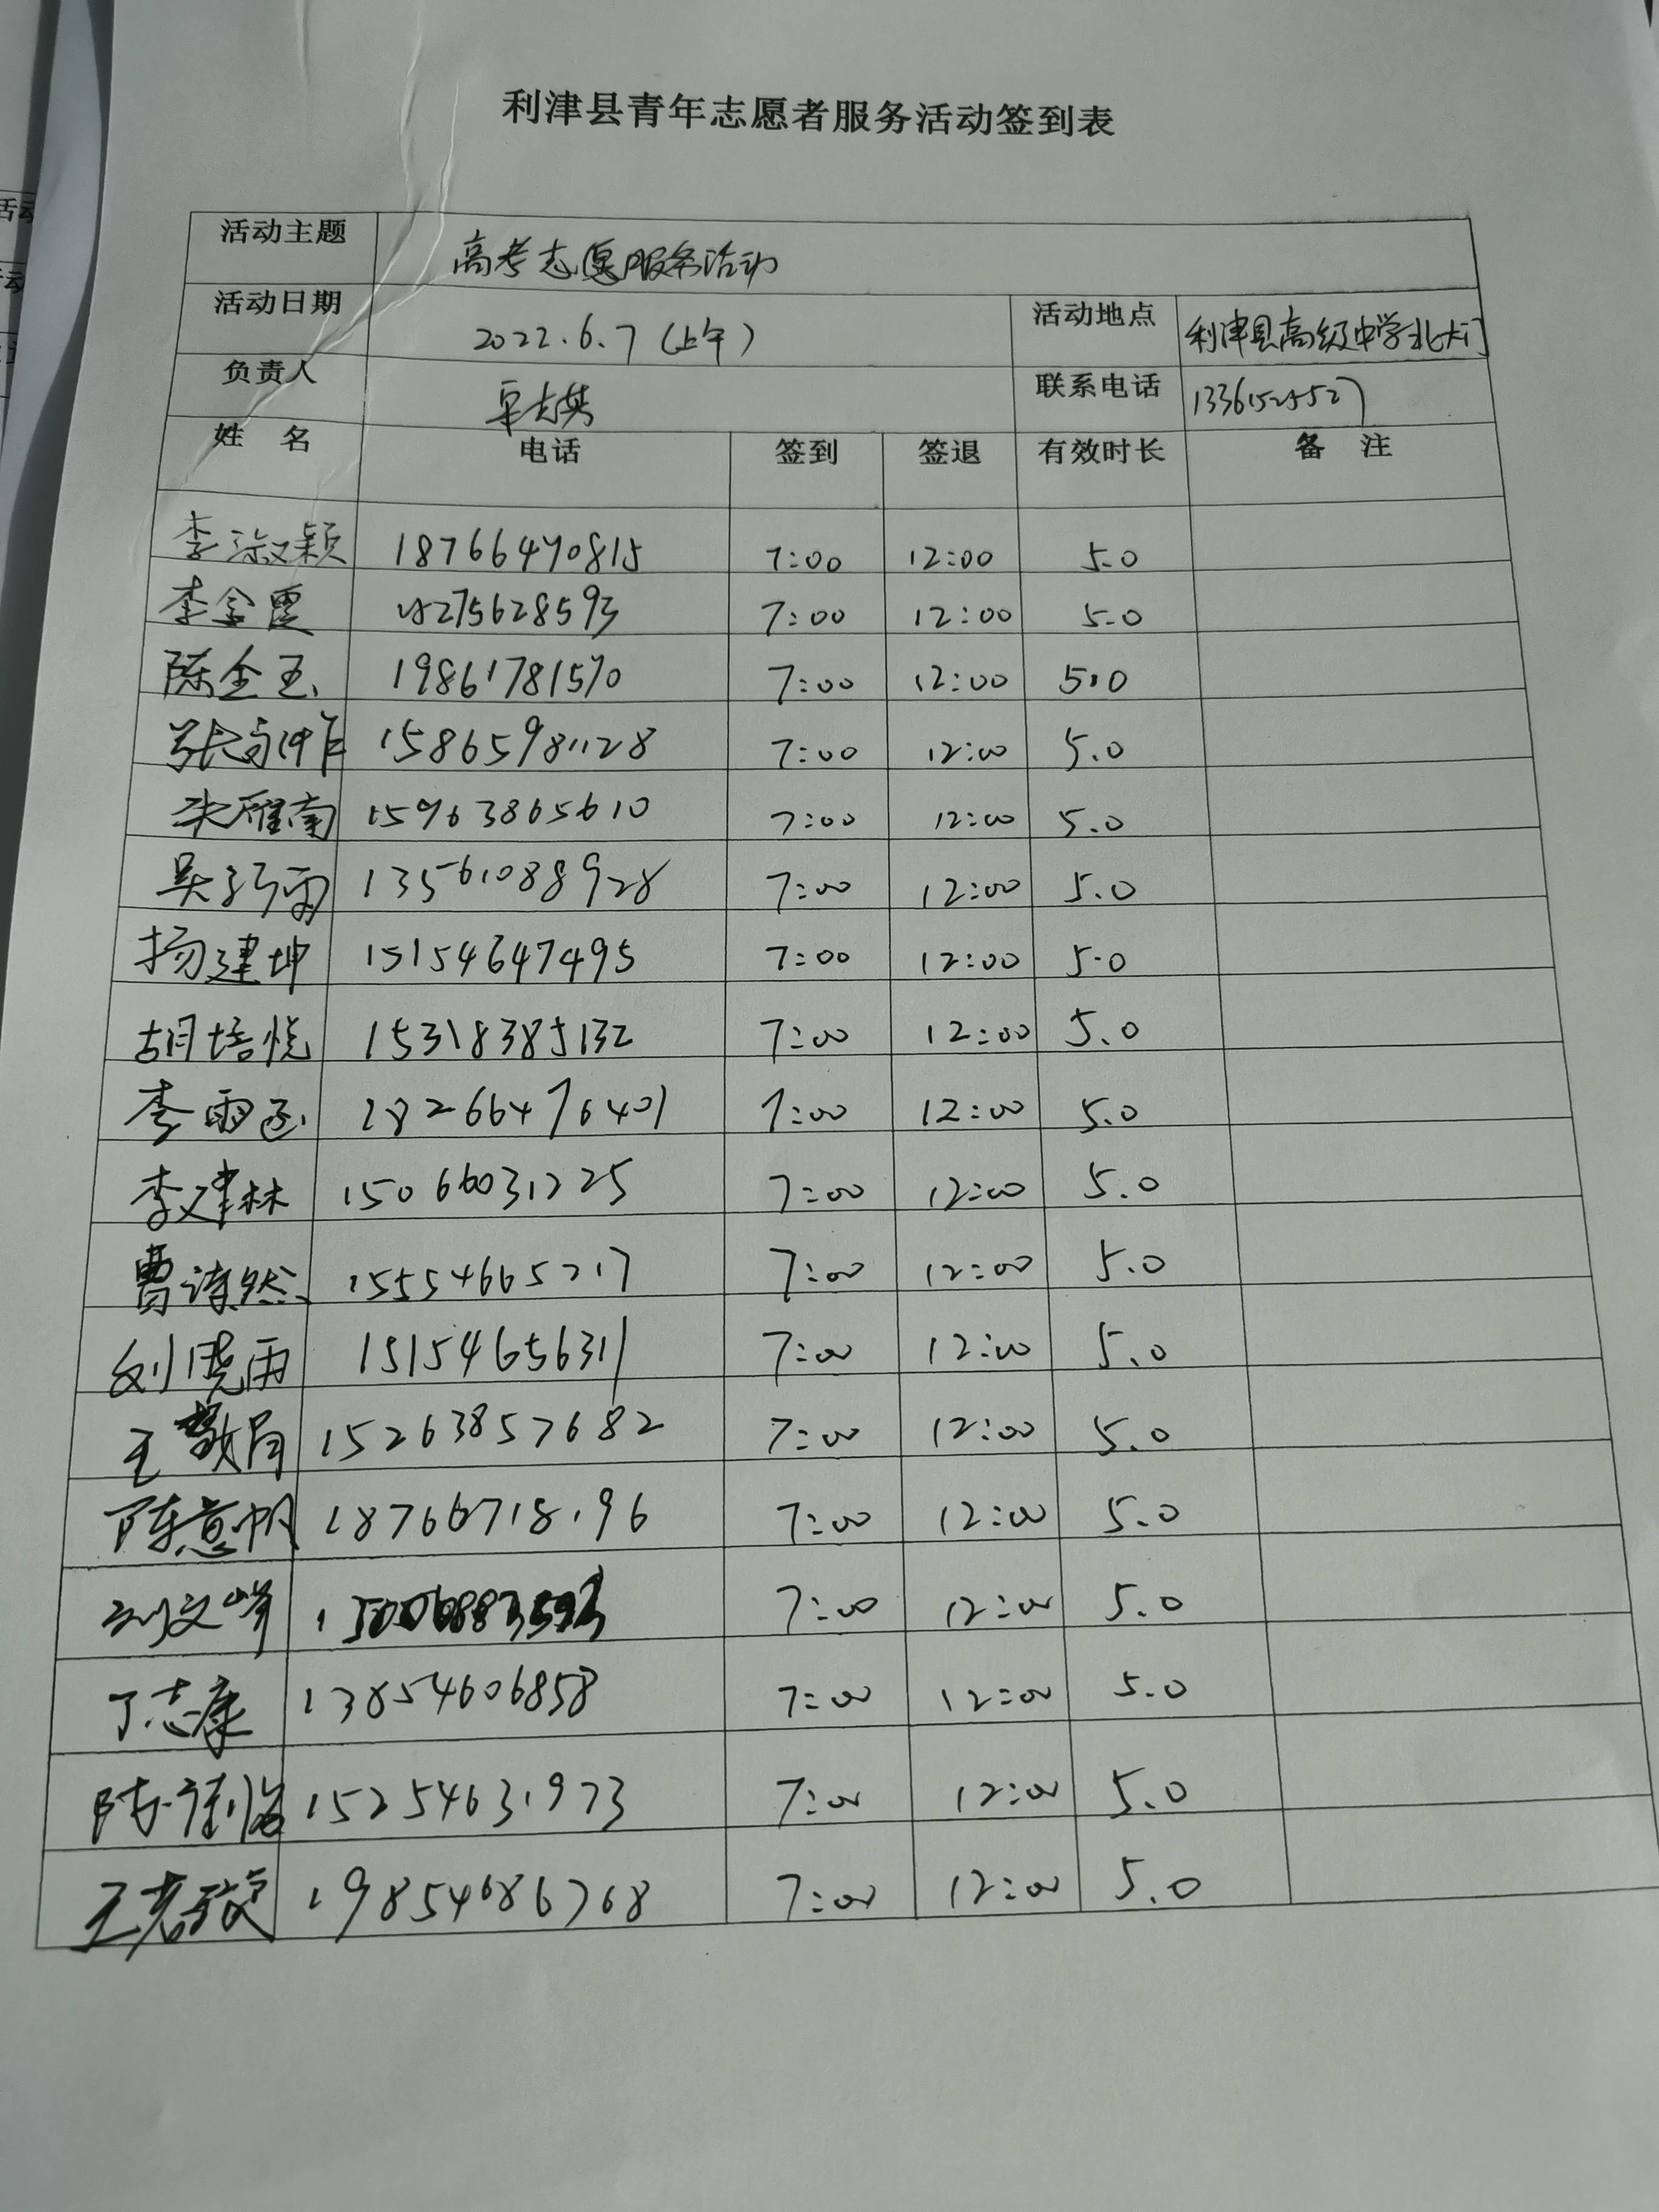 利津县青年志愿者服务活动签到表
活动主题 高考志愿服务活动
活动日期 2022.6.7(上午) 活动地点 利津县高级中学北大门
负责人 联系电话 13361525527
姓名 电话 签到 签退 有效时长 备注
李淑颖 18766470815 7:00 12:00 5.0
李金霞 18275628593 7:00 12:00 5.0
陈金玉 19861781570 7:00 12:00 5.0
15865981128 7:00 12:00 5.0
宋雁南 15963865610 7:00 12:00 5.0
13561088928 7:00 12:00 5.0
杨建坤 15154647495 7:00 12:00 5.0
胡培悦 15318385132 7:00 12:00 5.0
李雨函 18266476401 7:00 12:00 5.0
李建林 15066031225 7:00 12:00 5.0
曹诗然 15554665217 7:00 12:00 5.0
刘晓雨 15154656311 7:00 12:00 5.0
15263857682 7:00 12:00 5.0
陈意帆 18766718196 7:00 12:00 5.0
刘文峰 7:00 12:00 5.0
丁志康 13854606858 7:00 12:00 5.0
15254631973 7:00 12:00 5.0
19854686768 7:00 12:00 5.0